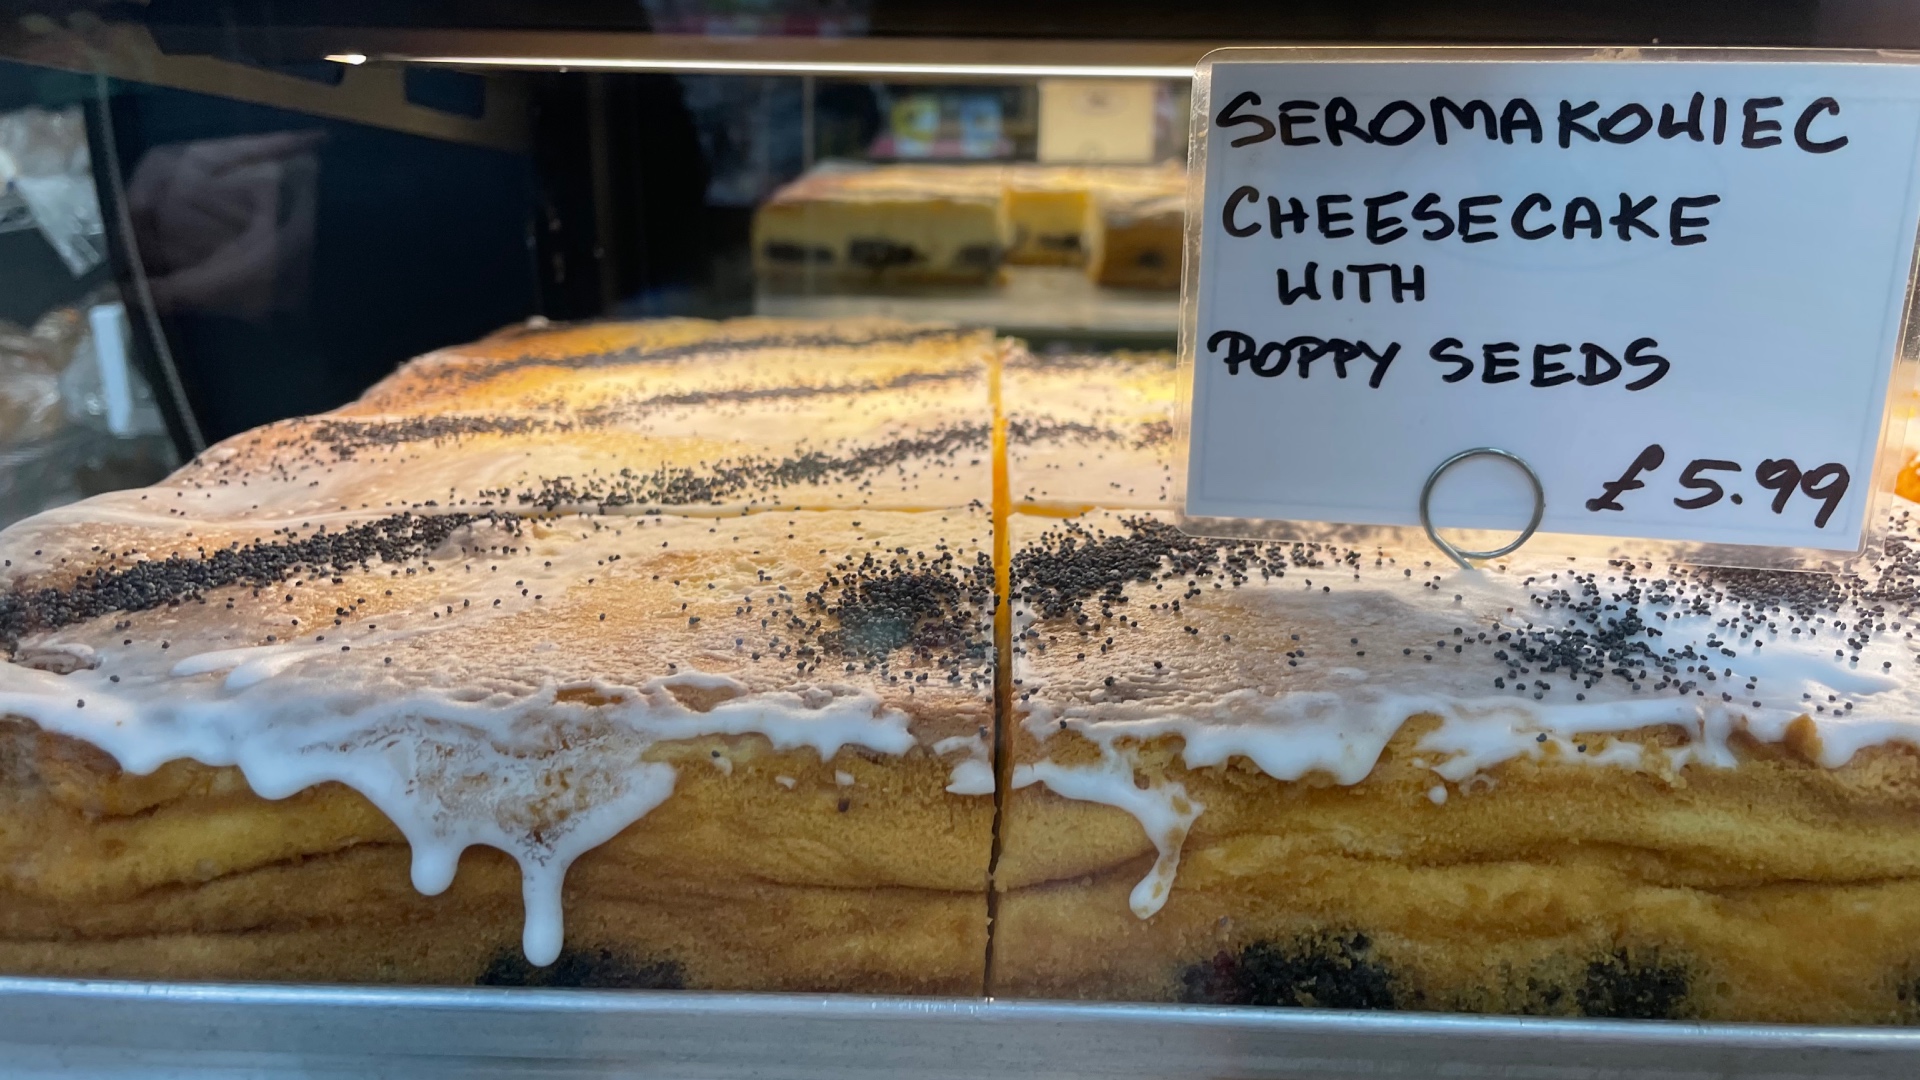 SEROMAKOWIEC
CHEESECAKE
WITH
POPPY SEEDS
£5.99